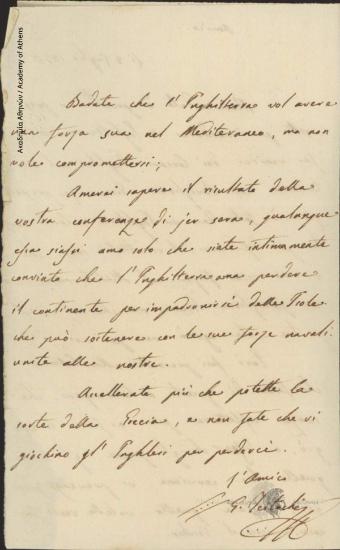 Ακαδημία Αθηνών / Academy of Athens
Badate che l'Inghilterra vol avere
una forza sua nel Mediteraneo, ma non
vole compromettersi;
Amerei sapere il risultato della
vostra conferenza di jer sera, qualunque
sia siasi amo solo che siate intimamente
convinto che l'Inghilterra ama perdere
il continente per impadronirsi delle Isole
che può sostenere con le sue forze navali
unite alle nostre.
Accellerate più che potette la
sorte della Grecia, e non fate che vi
giochino gl'Inghlesi per perderci.
l'Amico
G.